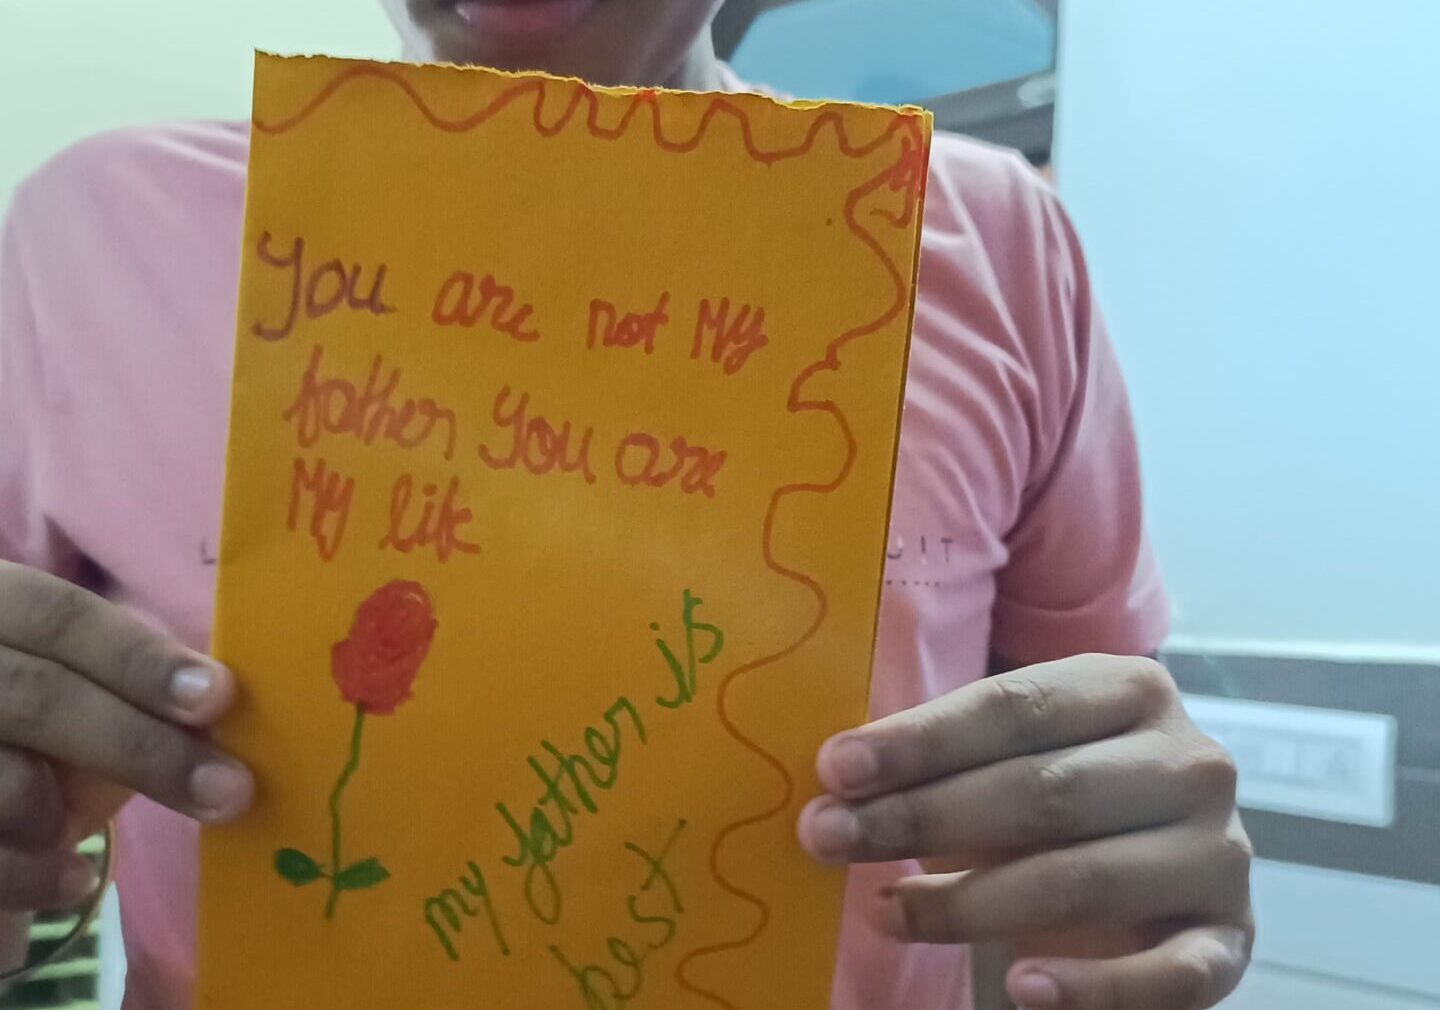 You are not My
father You are
My life
my father is
best